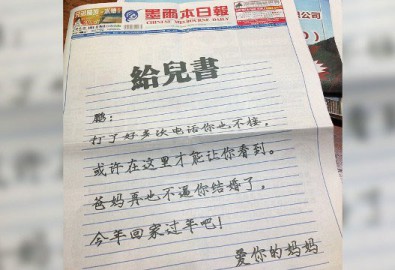 墨爾本日報
CHINESE MELBOURNE DAILY
給兒書
鹏：
打了好多次电话你也不接，
或许在这里才能让你看到。
爸妈再也不逼你结婚了，
今年回家过年吧！
爱你的妈妈
公司